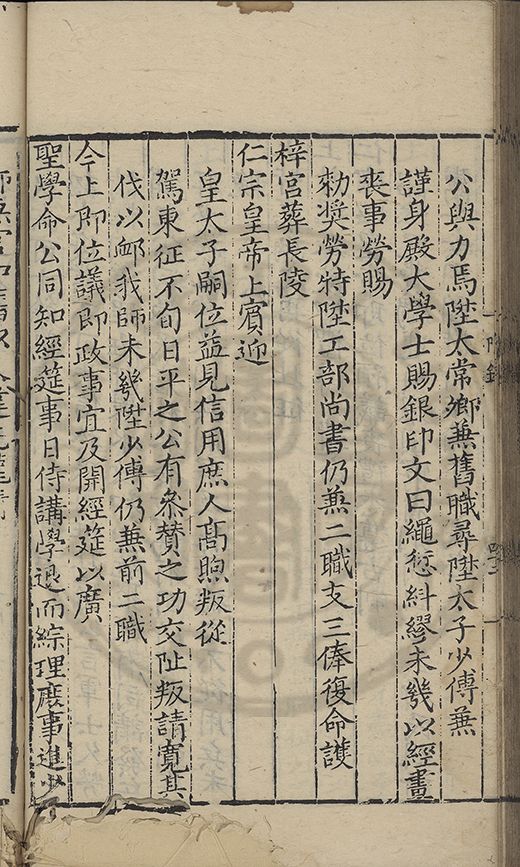 公與力焉陞太常卿兼舊職尋陞太子少傅兼
謹身殿大學士賜銀印文曰繩愆糾繆未幾以經畫
喪事勞賜
勑奬勞特陞工部尚書仍兼二職支三俸復命護
梓宮葬長陵
仁宗皇帝上賓迎
皇太子嗣位益見信用庶人高煦叛從
駕東征不旬日平之公有叅賛之功交阯叛請寬其
伐以䘏我師未幾陞少傅仍兼前二職
今上即位議即政事宜及開經筵以廣
聖學命公同知經筵事日侍講學退而綜理庶事進少